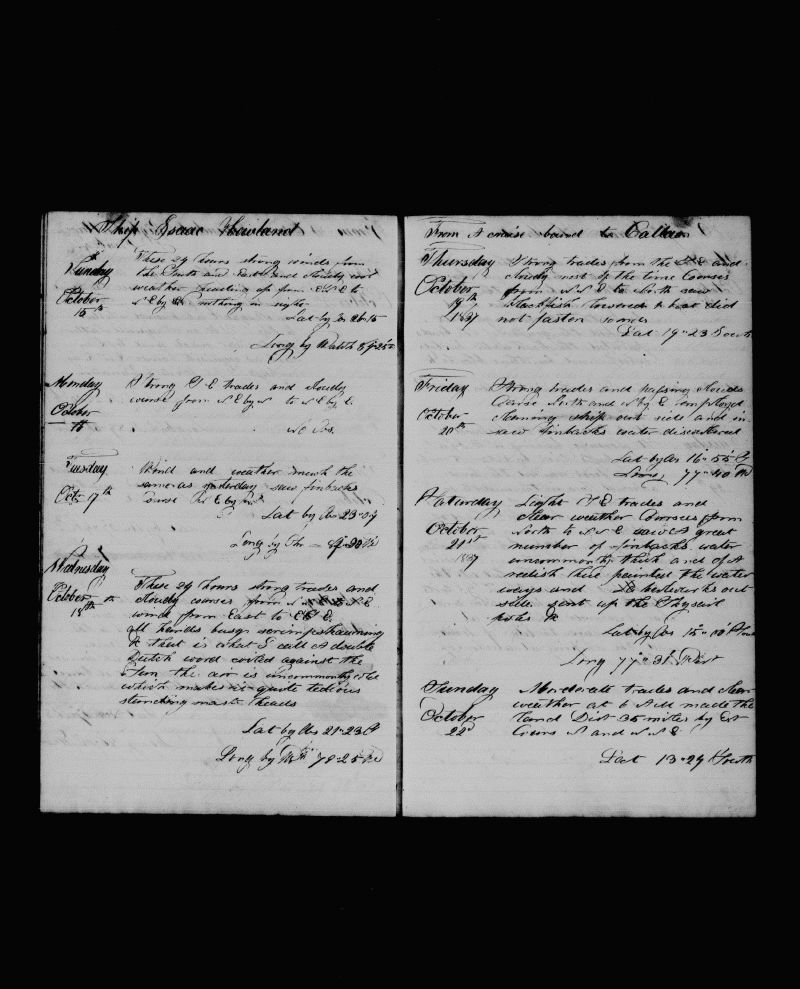 Ship Isaac Howland
Sunday
October
15th
These 24 hours strong winds from
the South and East and cloudy cool
weather heading up from ENE to
NE by nothing in sight
Lat by 26-15
Long by Watch
Monday
October
16
Strong S E trades and cloudy
course from N E by N to N E by E
No Obs.
Tuesday
Oct 17th
Wind and weather much the
same as yesterday saw finbacks
Course N E by N
Lat by Obs 23-
Long by Chr
Wednesday
October
18th
These 24 hours strong trades and
cloudy courses from
wind from East to E S E
all hands busy scrimpshawning
& that is what I call a double
Dutch word coiled against the
Sun the air is uncommonly cold
which makes it quite tedious
standing mast heads
Lat by Obs 21-23 S
Long by 78-25 W
From A cruise bound to Callao
Thursday
October
19th
1837
Strong trades from the S E and
cloudy most of the time Courses
from N N E to North saw
Blackfish lowered a boat did
not fasten
Lat 19-23 South
Friday
October
20th
Strong trades and passing clouds
Course North and N by E employed
cleaning ship out side and in
saw finbacks water discoloured
Lat by Obs 16-55 S
Long 77-40 W
Saturday
October
21st
1837
Light S E trades and
clear weather Courses from
North to N N E saw A great
number of finbacks water
uncommonly thick and of A
redish hue painted the water
ways and bulwarks out
side sent up the Flysail
poles &
Lat by Obs 15-10 South
Long 77-31 West
Sunday
October
22d
Moderate trades and clear
weather at 6 AM made the
land Dist 35 miles by Est
Cours N and N N E
Lat 13-29 South